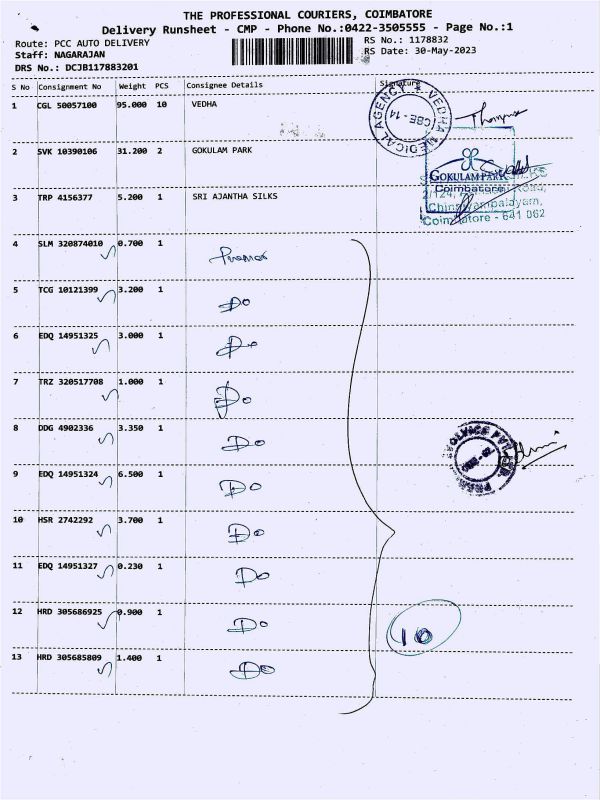 THE PROFESSIONAL COURIERS, COIMBATORE
Delivery Runsheet - CMP - Phone No.:0422-3505555 - Page No.:1
Route: PCC AUTO DELIVERY
RS No.: 1178832
Staff: NAGARAJAN
RS Date: 30-May-2023
DRS No.: DCJB117883201
S No Consignment No Weight PCS Consignee Details Signature
1 CGL 50057100 95.000 10 VEDHA
VEDHA MEDICAL AGENCY
CBE - 14
2 SVK 10390106 31.200 2 GOKULAM PARK
GOKULAM PARK
Coimbatore
3 TRP 4156377 5.200 1 SRI AJANTHA SILKS
Coimbatore - 641 062
4 SLM 320874010 0.700 1
5 TCG 10121399 3.200 1 Do
6 EDQ 14951325 3.000 1 Do
7 TRZ 320517708 1.000 1 Do
8 DDG 4902336 3.350 1 Do
9 EDQ 14951324 6.500 1 Do
10 HSR 2742292 3.700 1 Do
11 EDQ 14951327 0.230 1 Do
12 HRD 305686925 0.900 1 Do
10
13 HRD 305685809 1.400 1 Do